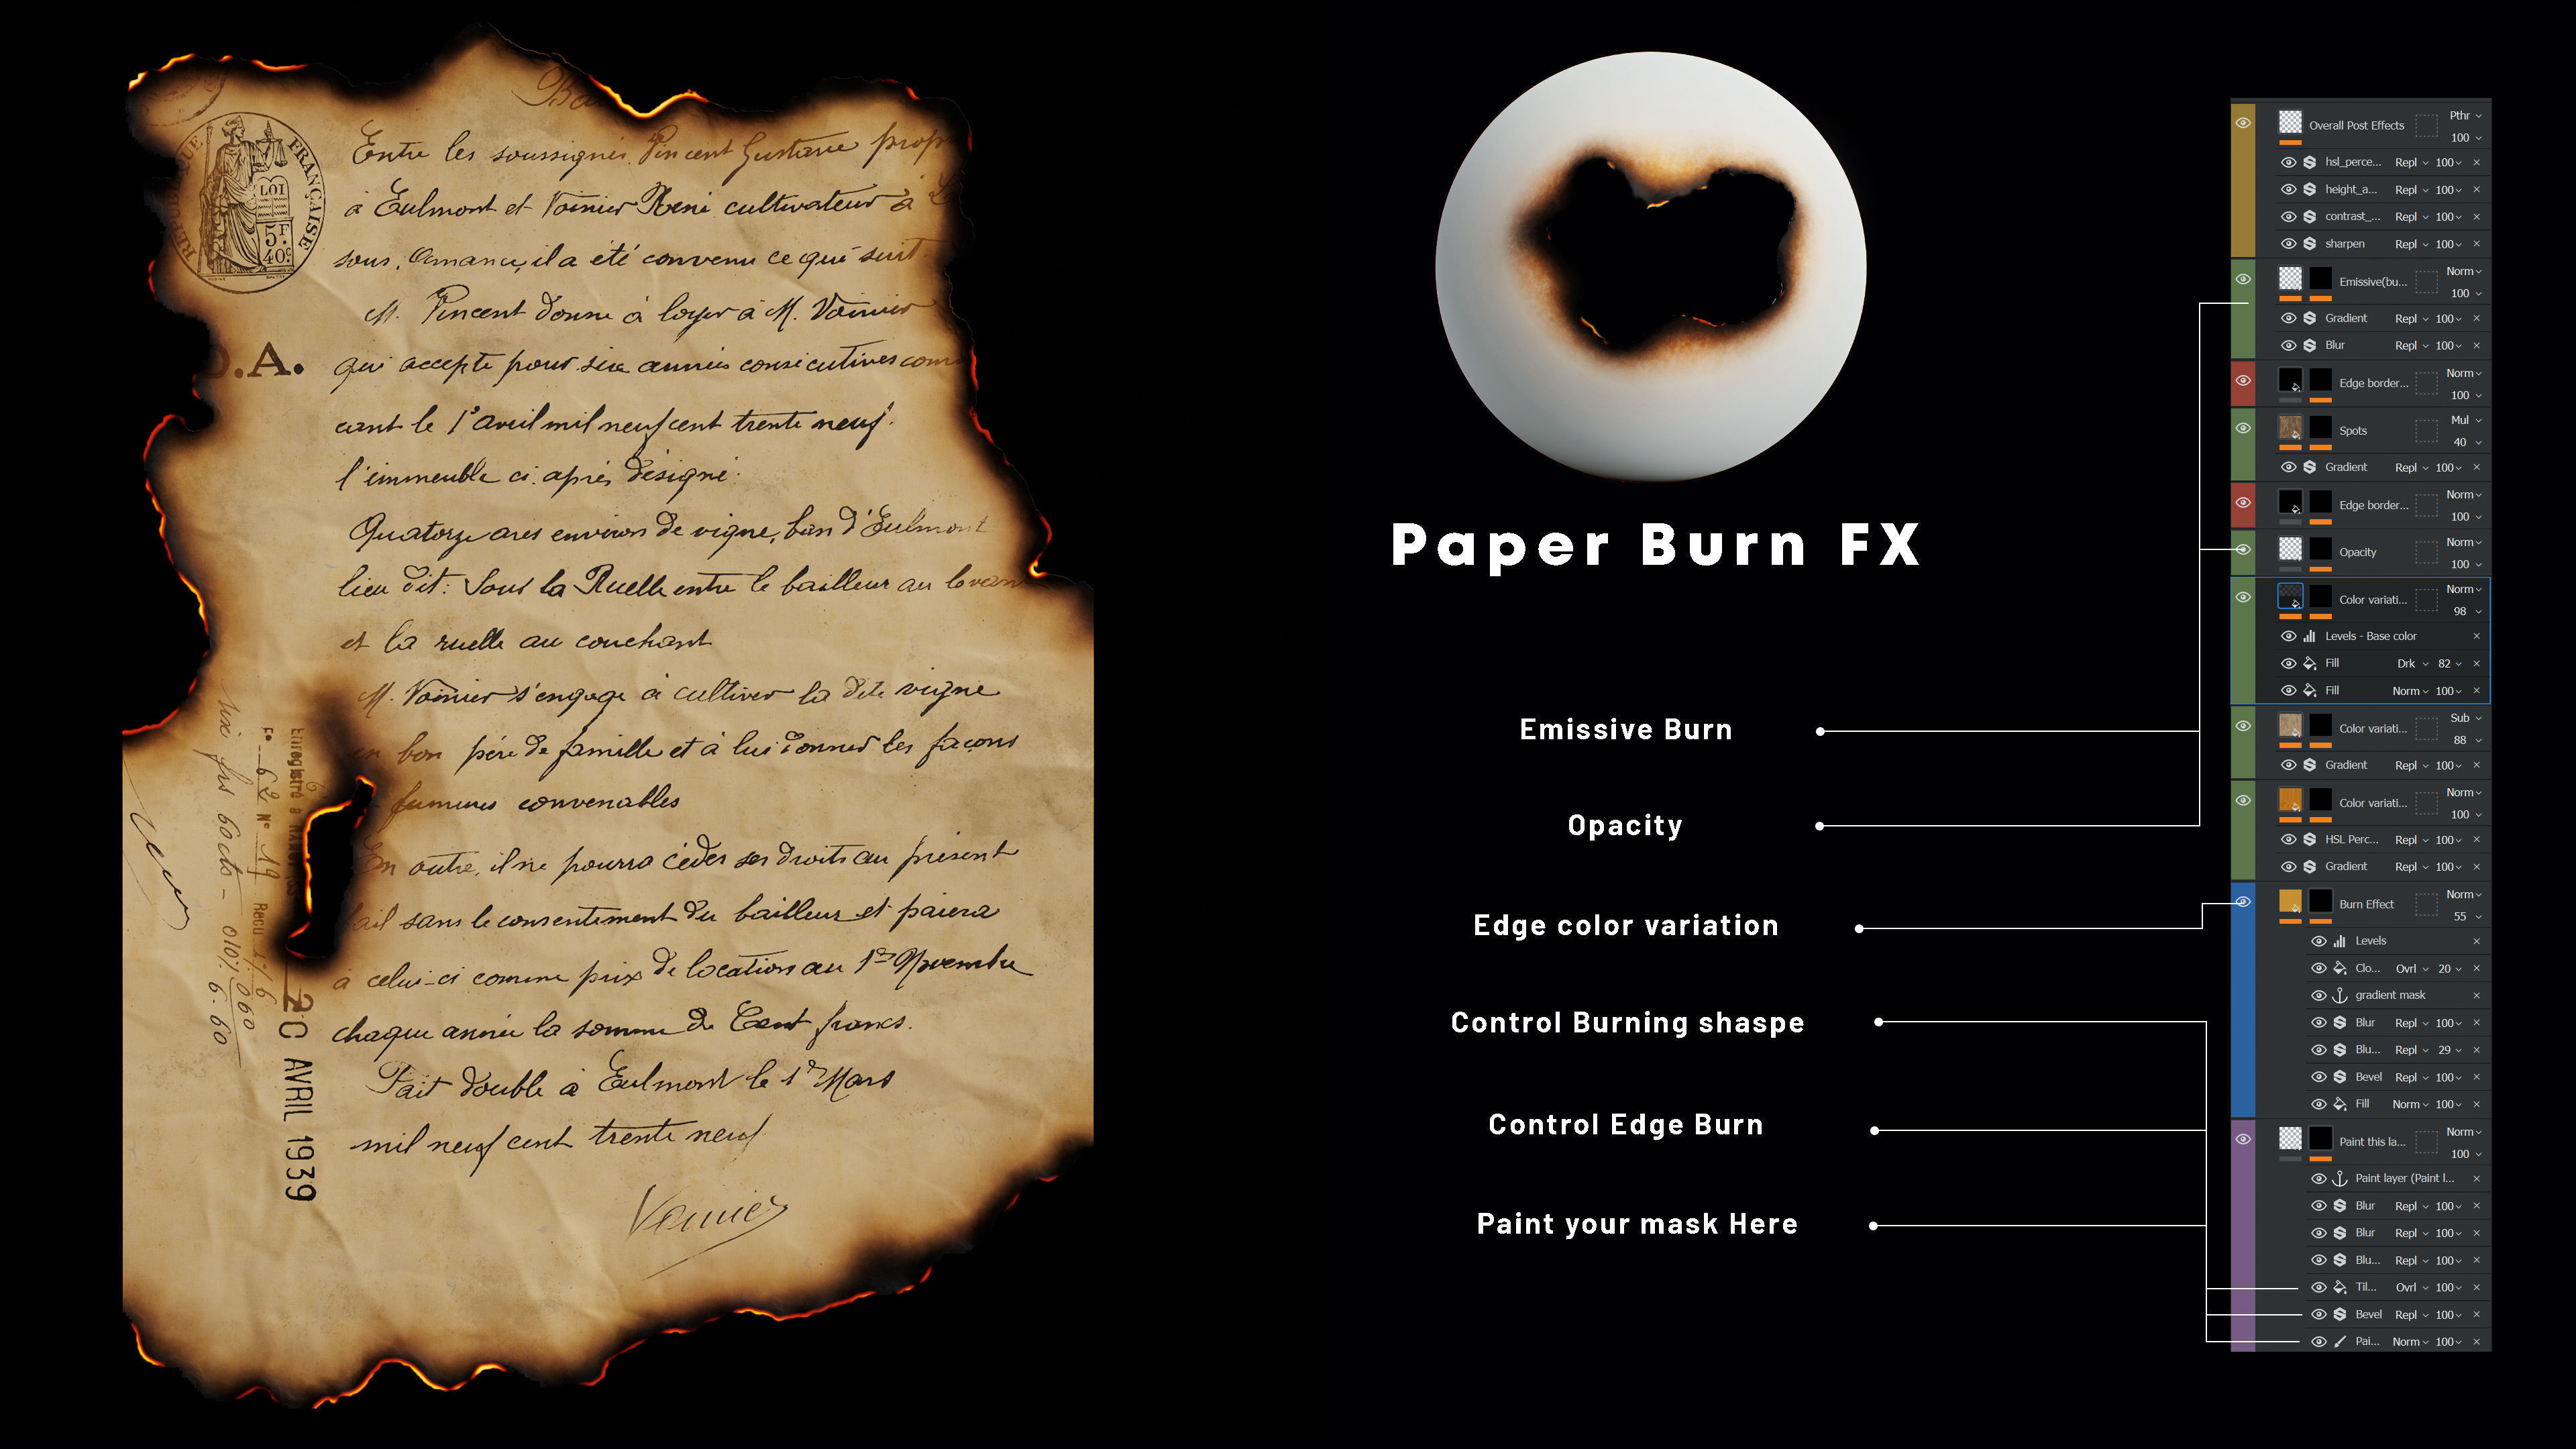 Ba
REPUBLIQUE FRANÇAISE
LOI
5F.
40c
Entre les soussignés Vincent Gustave prop
à Eulmont et Voinier René cultivateur à
sous Amance, il a été convenu ce qui suit.
M. Vincent donne à loyer à M. Voinier
D.A.
qui accepte pour six années consécutives com
cant le 1er avril mil neuf cent trente neuf.
l'immeuble ci. après désigné:
Quatorze ares environ de vigne, ban d'Eulmont
lieu dit: Sous la Ruelle entre le bailleur au levan
et la ruelle au couchant
M. Voinier s'engage à cultiver la dite vigne
en bon père de famille et à lui donner les façons
fumures convenables
En outre, il ne pourra céder ses droits au présent
bail sans le consentement du bailleur et paiera
à celui-ci comme prix de location au 1er Novembre
chaque année la somme de Cent francs.
Fait double à Eulmont le 1er Mars
mil neuf cent trente neuf
Enregistré à
F° 62 N° 19 Reçu
20 AVRIL 1939
Paper Burn FX
Emissive Burn
Opacity
Edge color variation
Control Burning shaspe
Control Edge Burn
Paint your mask Here
Overall Post Effects Pthr
100
hsl_perce... Repl 100
height_a... Repl 100
contrast_... Repl 100
sharpen Repl 100
Emissive(bu... Norm
100
Gradient Repl 100
Blur Repl 100
Edge border... Norm
100
Spots Mul
40
Gradient Repl 100
Edge border... Norm
100
Opacity Norm
100
Color variati... Norm
98
Levels - Base color
Fill Drk 82
Fill Norm 100
Color variati... Sub
88
Gradient Repl 100
Color variati... Norm
100
HSL Perc... Repl 100
Gradient Repl 100
Burn Effect Norm
55
Levels
Clo... Ovrl 20
gradient mask
Blur Repl 100
Blu... Repl 29
Bevel Repl 100
Fill Norm 100
Paint this la... Norm
100
Paint layer (Paint l...
Blur Repl 100
Blur Repl 100
Blu... Repl 100
Til... Ovrl 100
Bevel Repl 100
Pai... Norm 100